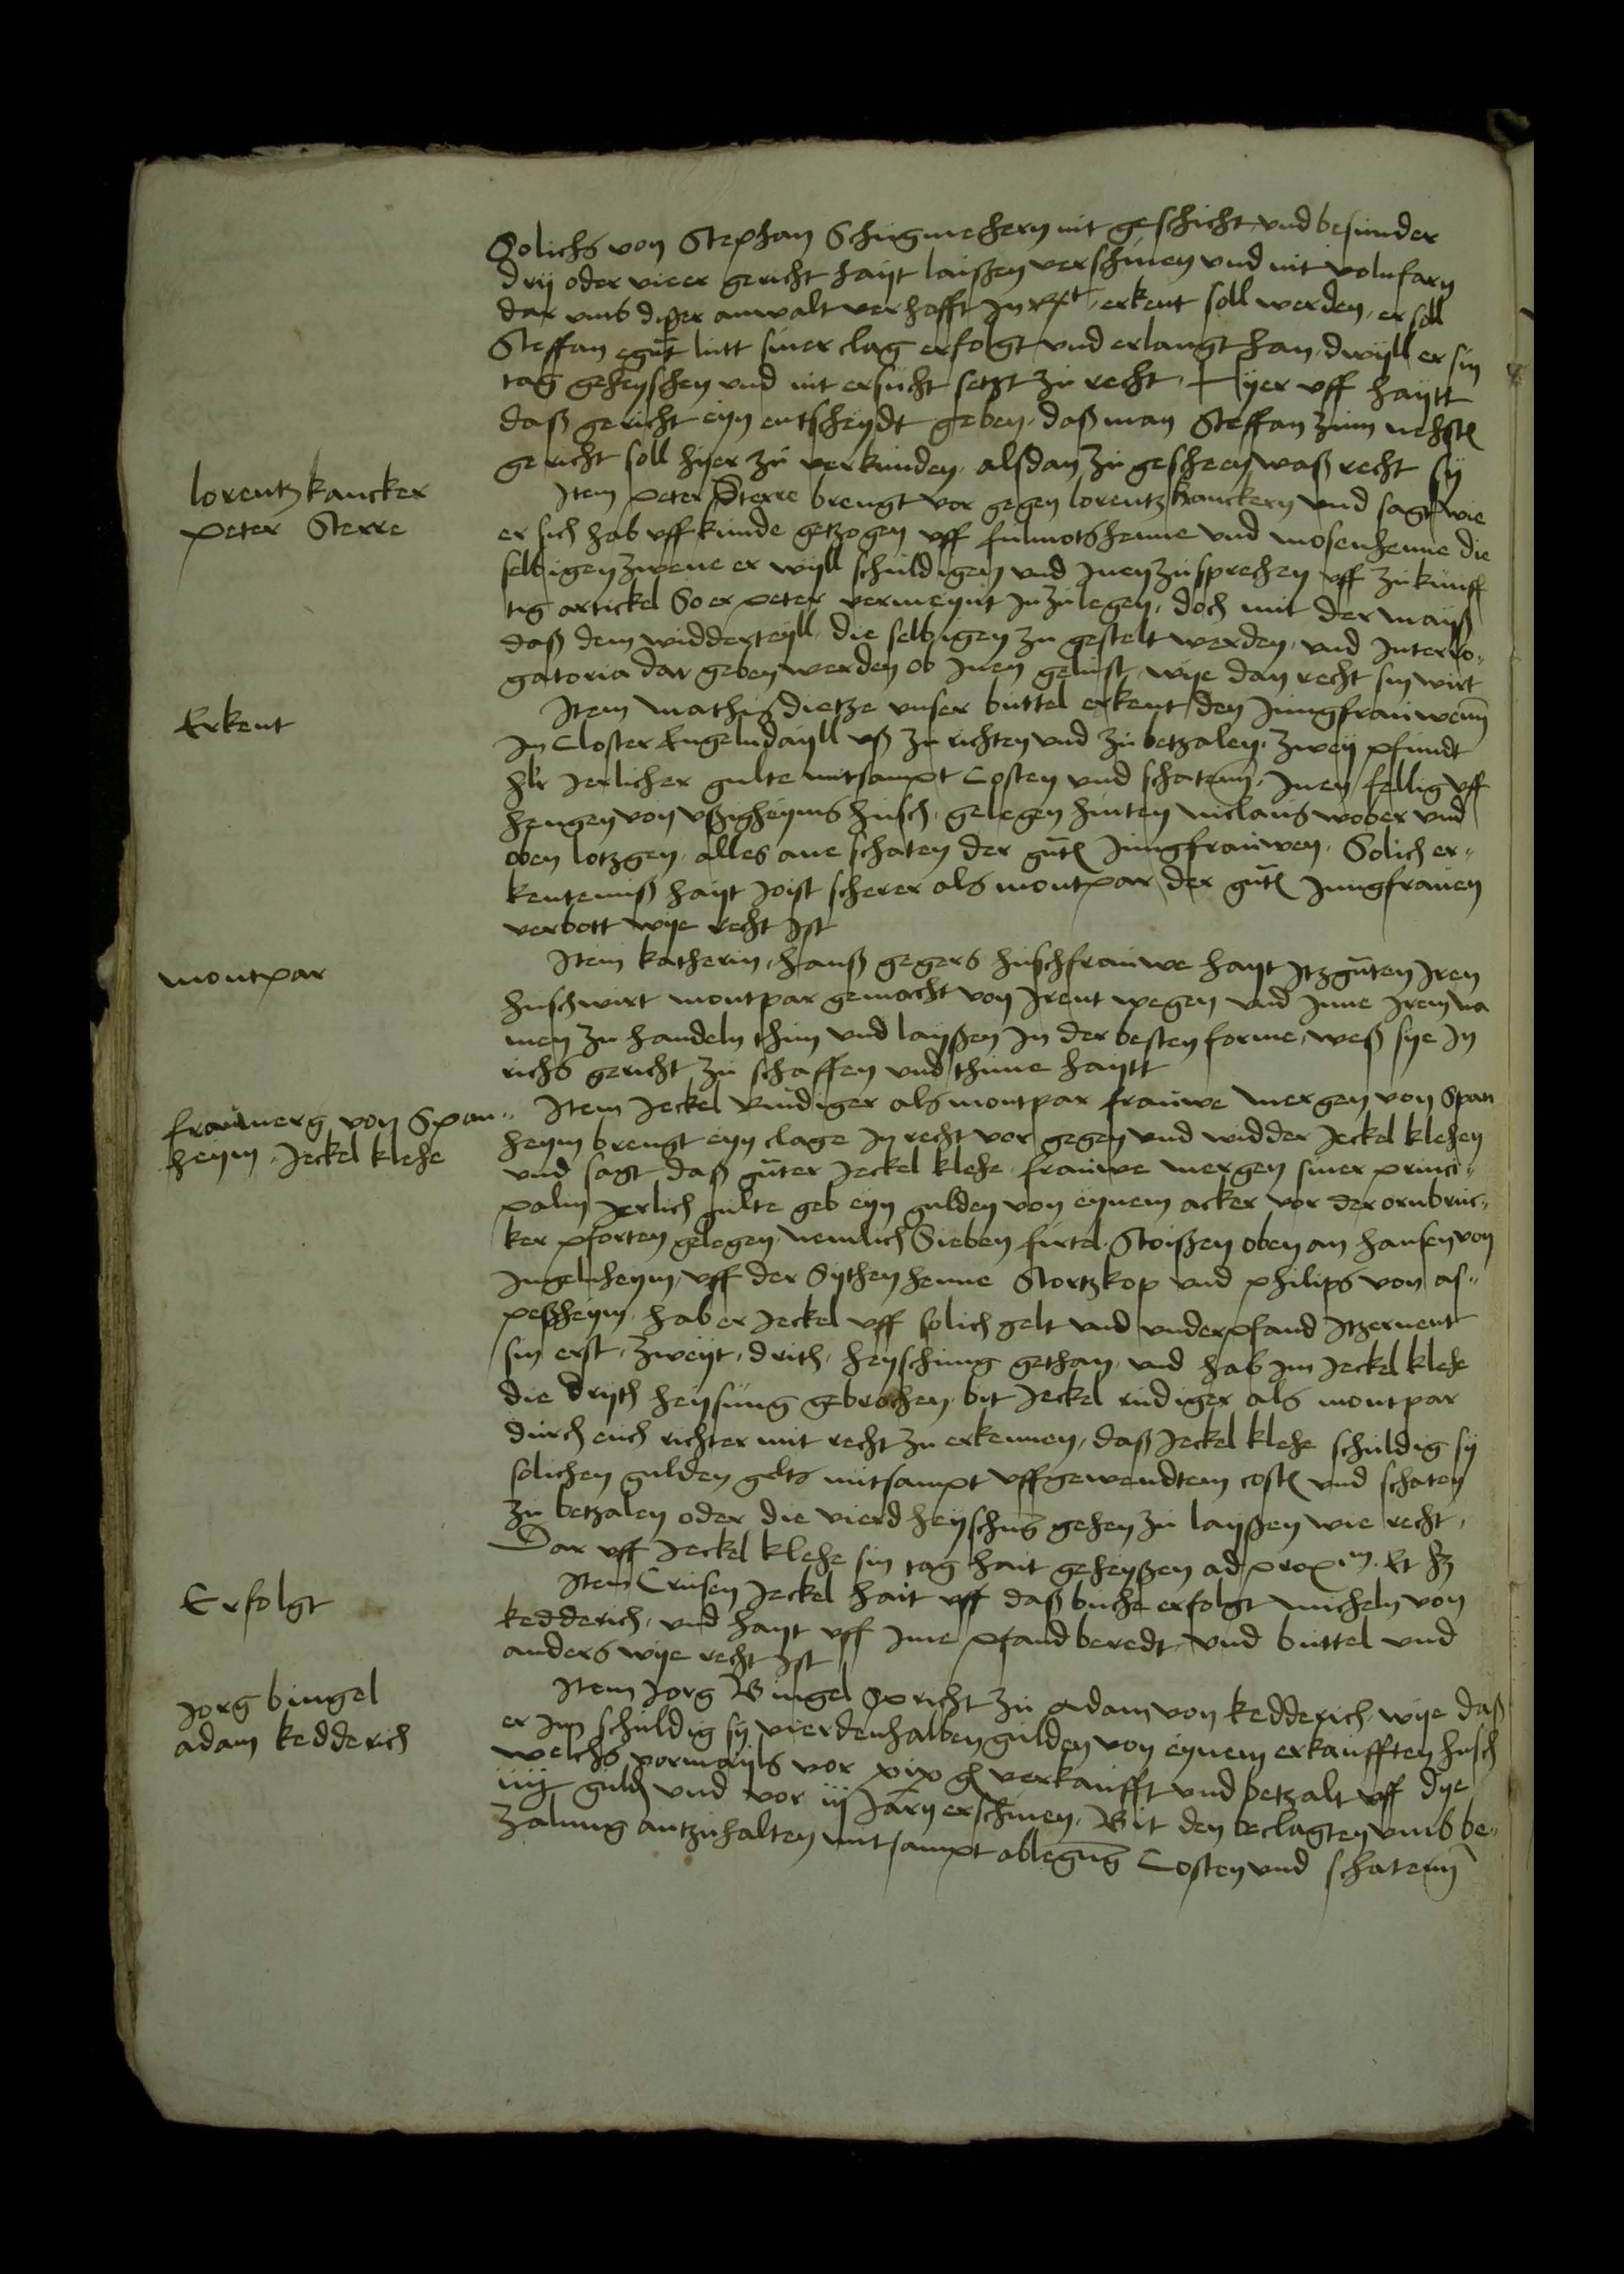 Solichs von Stephan Schugmechern nit geschicht und besunder
drij oder vieer gericht hayt laißen verschinen und nit volnfarn
dar umb dißer anwalt verhofft in recht erkent soll werden, er soll
Steffan egut lutt siner clag erfolgt und erlangt han, dwyll er sin
tag geheyschen und nit ersucht setzt zu recht. Hyer uff haytt
daß gericht eyn entscheydt geben, daß man Steffan zum nehsten
gericht soll hyer zu verkunden, alsdan zu gescheen waß recht sy
lorentz kancker
peter Sterre
Item peter Sterre brengt vor gegen lorentz kanckern und sagt wie
er sich hab uff kunde getzogen uff fulmotshenne und mosenhenne die
selbigen zwene er wyll schuldigen und inen zusprechen uff zukunff
tig artickel So er peter vermeynt in zulegen, doch mit der mayß
daß dem widderteyll, die selbigen zu gestelt werden, und interro„
gatoria dar geben werden ob inen gelust, wye dan recht sin wirt
Erkent
Item Mathis dietze unser buttel erkent den Jungfrauwenn
im Closter Engelndayll uß zu richten und zu betzalen, zweÿ pfundt
hlr jerlicher gulte mitsampt Costen und schatenn, inen fellig uff
hengen von ußigheyms husch, gelegen hinten niclaus wober und
oben lotzgen, alles ane schaten der gut Jungfrauwen. Solich er„
kentemiß hayt joist scherer als montpar der gut Jungfrauen
verbott wye recht ist
montpar
Item katherin, hanß gegers huschfrauwe hayt itzguten iren
huschwirt montpar gemacht von irent wegen und inne irem na
men zu handeln thun und layßen in der besten forme, weß sye in
richs gericht zu schaffen und thune haytt
frauwmerg von Span„
heym, Jeckel klehe
Item Jeckel Rudiger als montpar frauwe mergen von Span
heym brengt eyn clage in recht vor gegen und widder Jeckel klehen
und sagt, daß guter Jeckel klehe, frauwe mergen siner princi„
palin jerlich gulte geb eyn gulden von eynem acker vor der ornbruc„
ker pforten gelegen, nemlich Sieben firtel, Stoißen oben an hansen von
Ingelnheym, uff der Sythen henne Stortzkop und philips von as„
peßheym, hab er Jeckel uff solich gelt und underpfand itzernent
sin erst, zweyt, drith, heyschung gethan, und hab im Jeckel klehe
die drÿth heysung gebrochen, bit Jeckel rudiger als montpar
durch euch richter mit recht zu erkennen, daß Jeckel klehe schuldig sy
solichen gulden gelts mitsampt uffgewendtem cost und schaten
zu betzalen oder die vierd heyschung gehen zu layßen wie recht,
Dar uff Jeckel klehe sin tag hait geheyßen ad proxm. Et hz
Erfolgt
Item Crusen Jeckel hait uff daß buche erfolgt micheln von
kedderich, und hayt uff ine pfand beredt, und buttel und
anders wye recht ist
Jorg bingel
adam kedderich
Item Jorg Bingel Spricht zu Adam von kedderich, wye daß
er im schuldig sy vierdenhalben gulden von eynem erkaufften husch
welchs vormayls vor xix g verkaufft und betzalt uff dye
iiij guld und vor iij Jarn erschinen, Bit den beclagten umb be„
zalung antzuhalten mitsampt ablegung Costen und schatenn